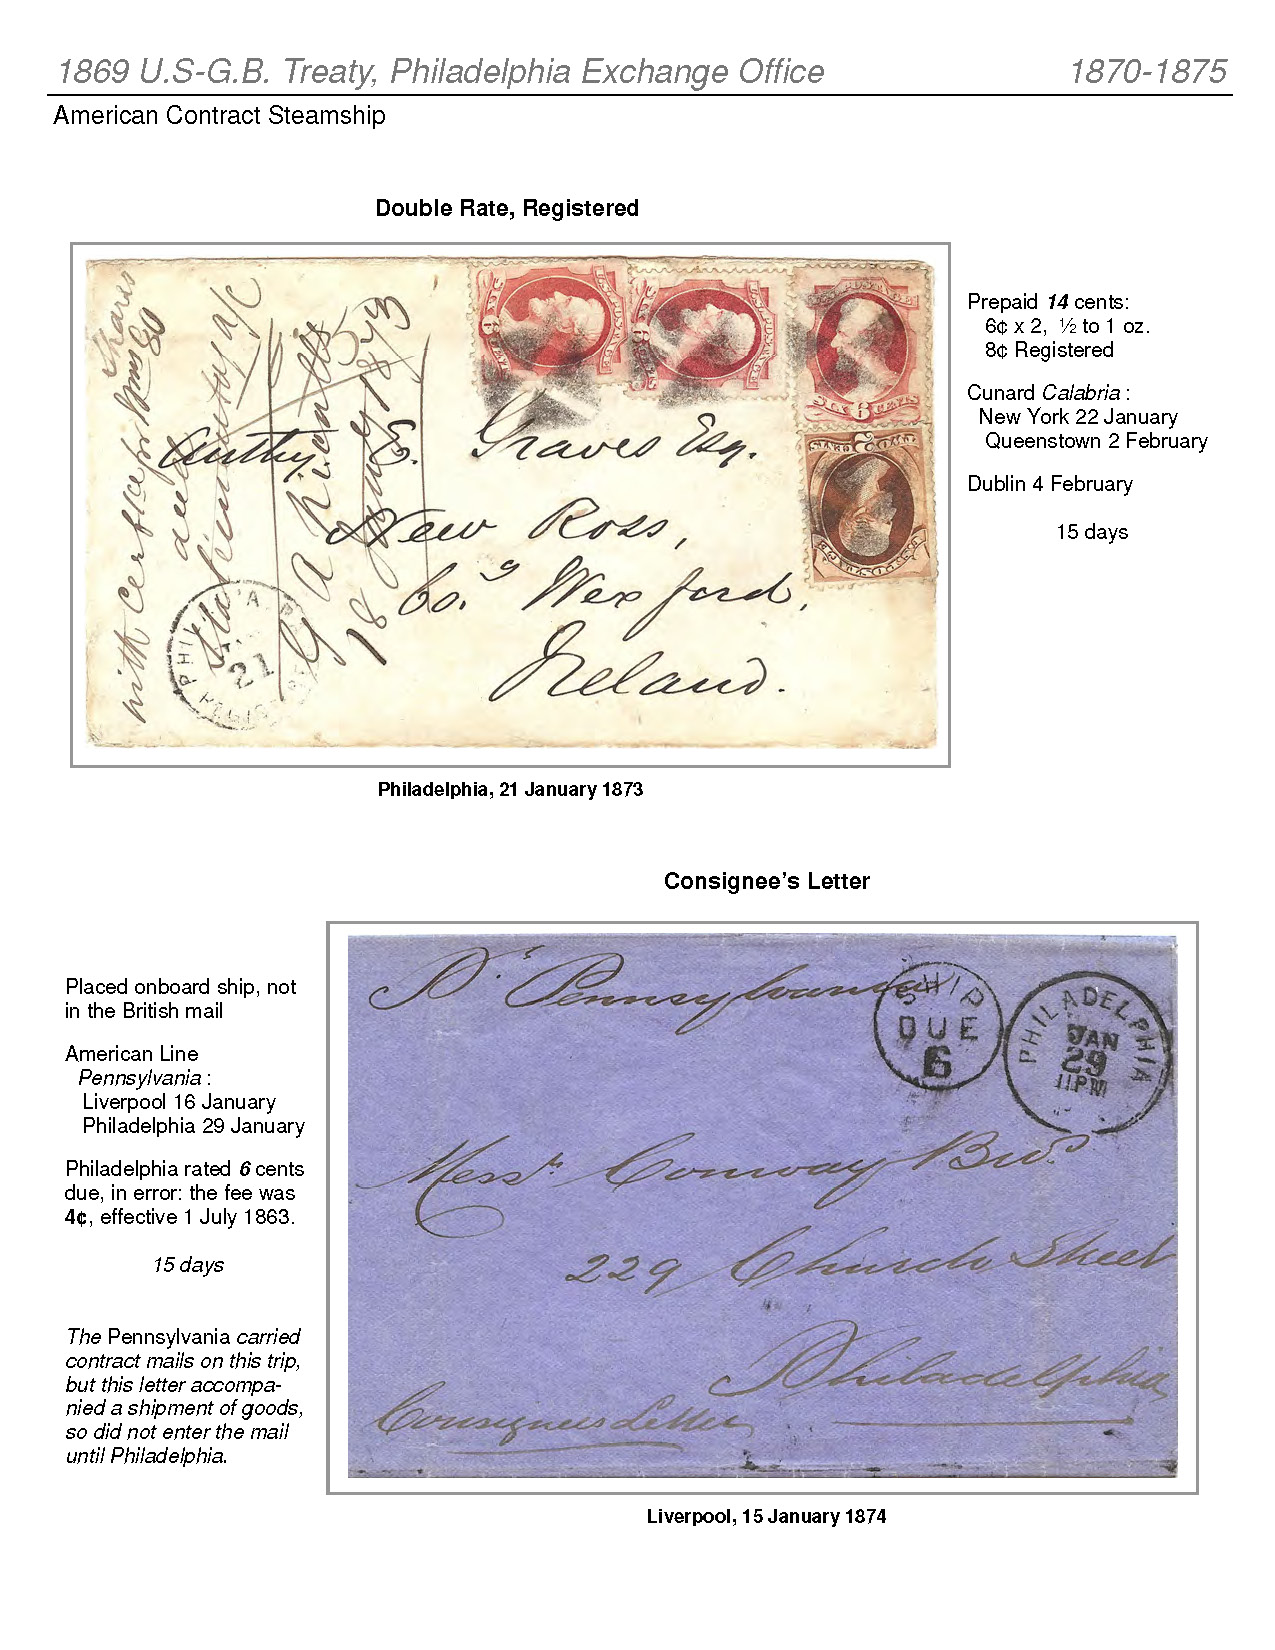 1869 U.S-G.B. Treaty, Philadelphia Exchange Office 1870-1875
American Contract Steamship
Double Rate, Registered
Prepaid 14 cents:
6¢ x 2, ½ to 1 oz.
8¢ Registered
Cunard Calabria :
New York 22 January
Queenstown 2 February
Dublin 4 February
15 days
Anthy E. Graves Esq.
New Ross,
Co. Wexford,
Ireland.
21
SIX 6 CENTS
Philadelphia, 21 January 1873
Consignee's Letter
Placed onboard ship, not
in the British mail
American Line
Pennsylvania :
Liverpool 16 January
Philadelphia 29 January
Philadelphia rated 6 cents
due, in error: the fee was
4¢, effective 1 July 1863.
15 days
The Pennsylvania carried
contract mails on this trip,
but this letter accompa-
nied a shipment of goods,
so did not enter the mail
until Philadelphia.
Pr. Pennsylvania
SHIP
DUE
6
PHILADELPHIA
JAN
29
11PM
Messrs. Conway Bros
229 Church Street
Philadelphia
Consignees Letter
Liverpool, 15 January 1874